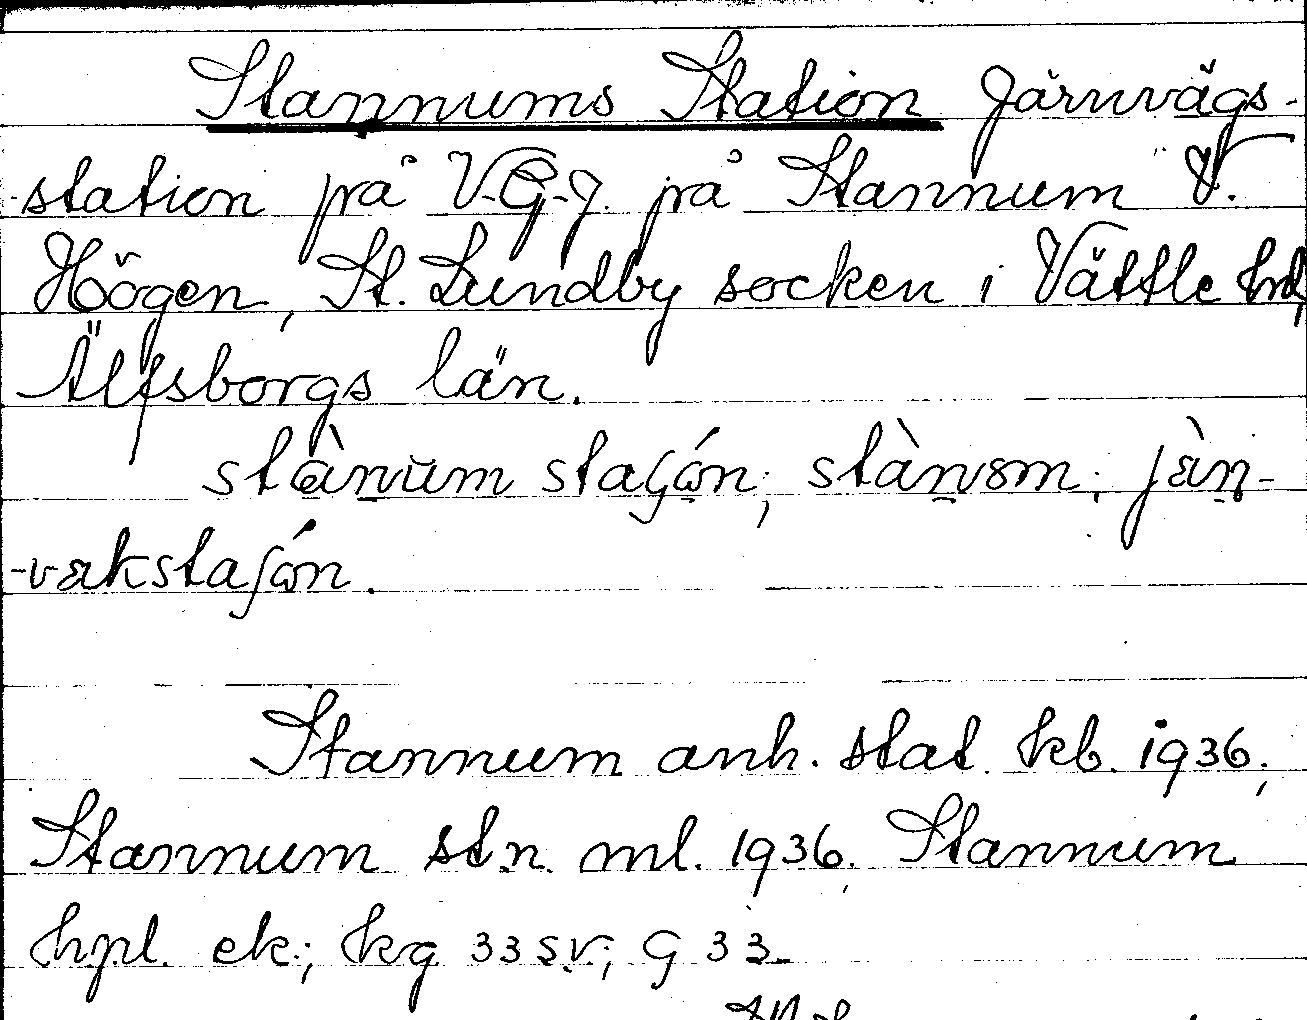 Stannums Station Järnvägs-
-station på V.G.J. på Stannum V.
Högen, St. Lundby socken i Vättle hd,
Älfsborgs län.
stànŭm staʃón; stànɷm; jæ̀n-
-vækstaʃón.
Stannum anh. stat. kb. 1936;
Stannum stn. ml. 1936. Stannum
hpl. ek.; kg 33 SV; G 33